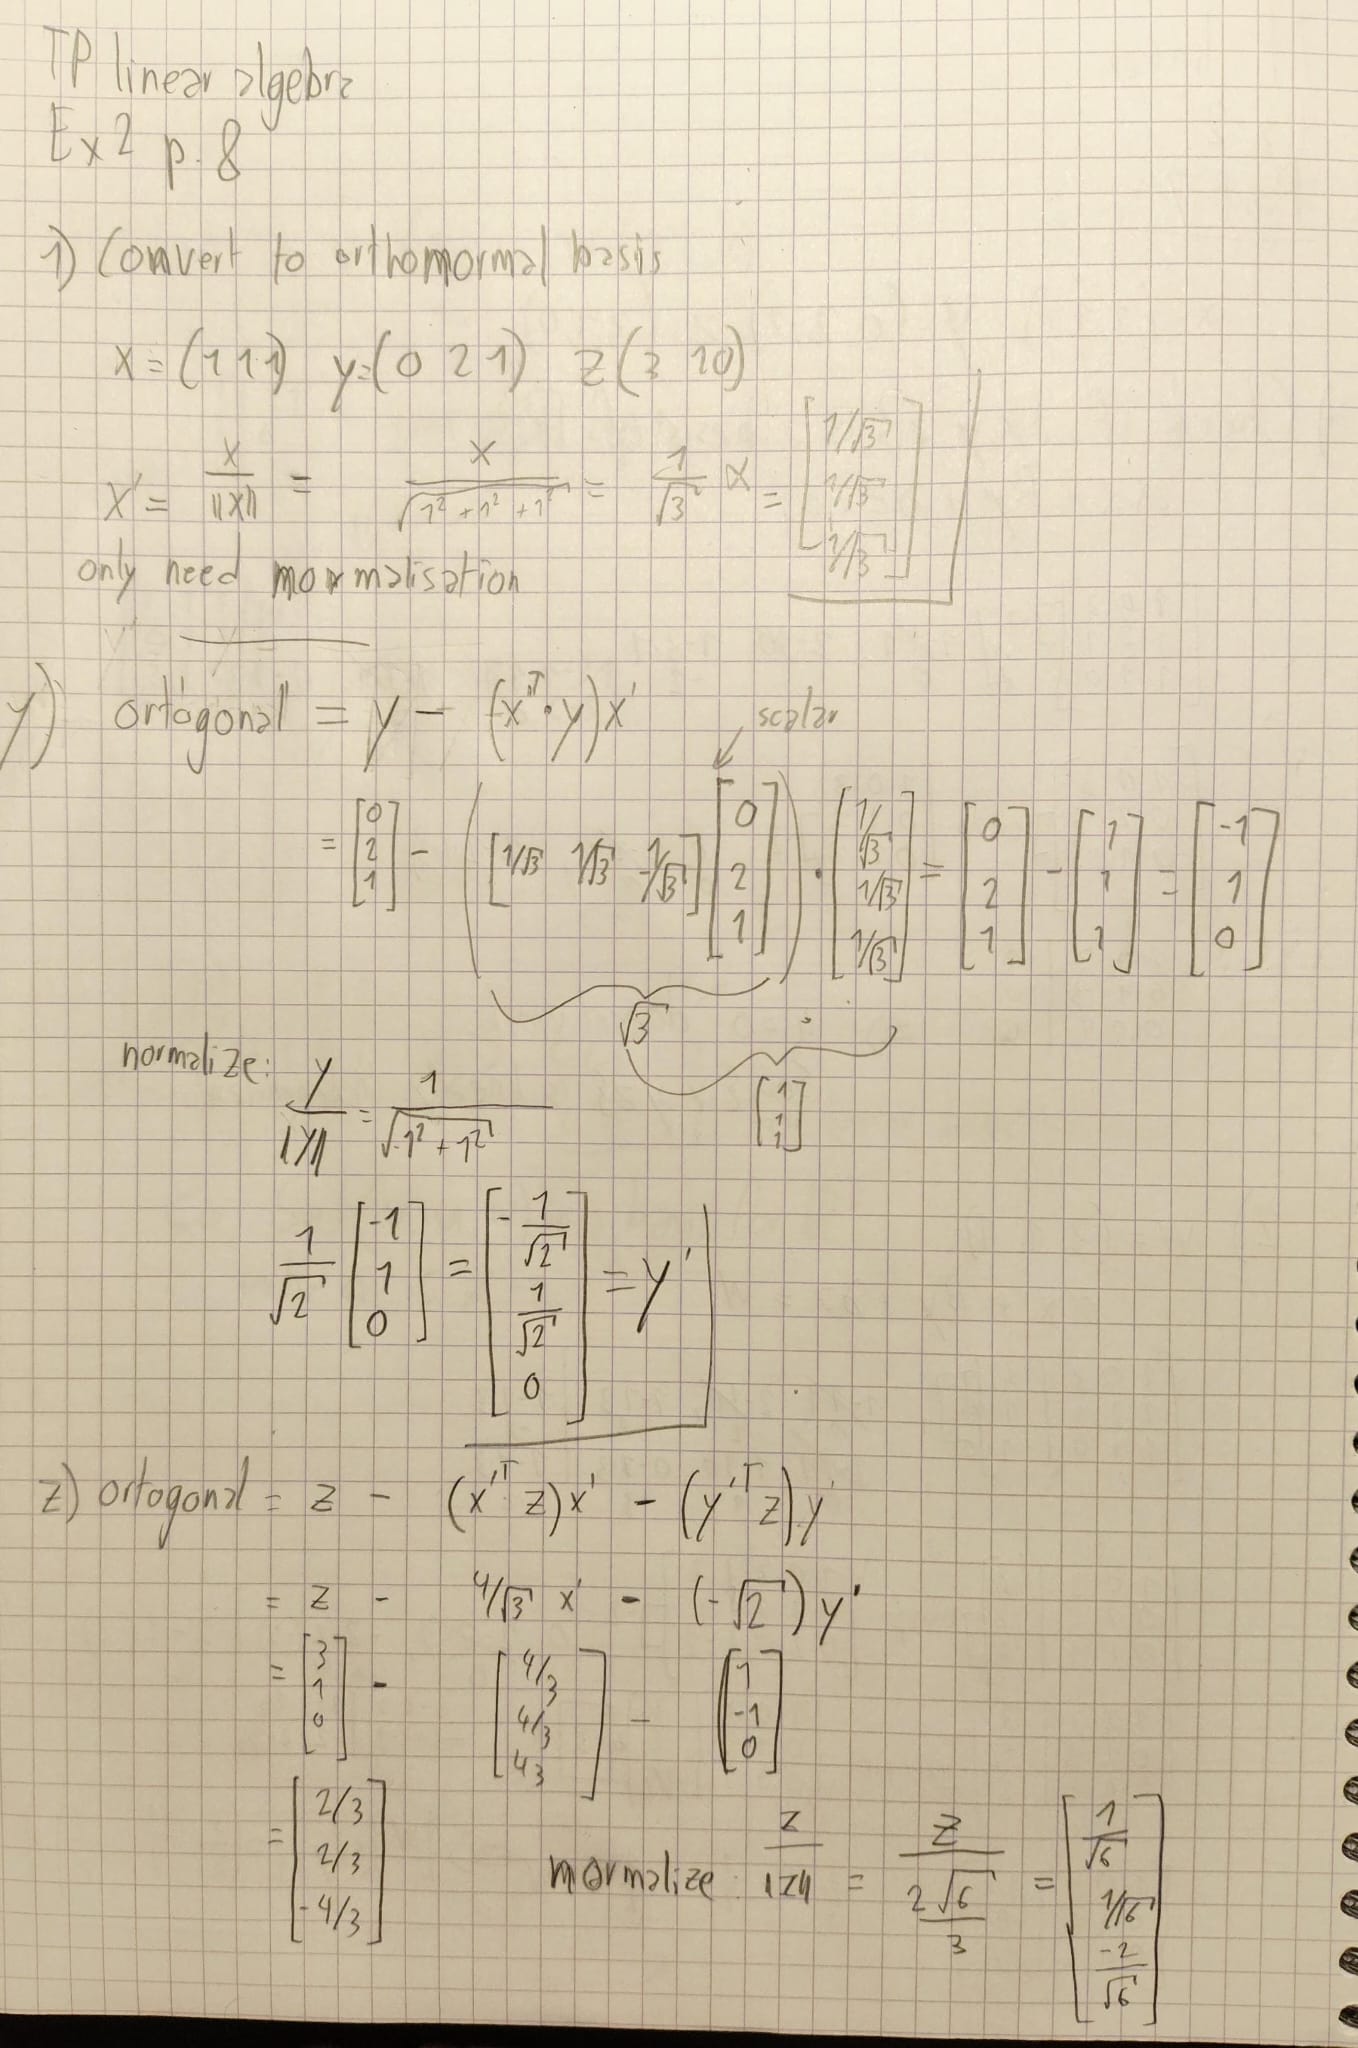 TP linear algebra
Ex2 p. 8
1) Convert to orthomormal basis
x = (1 1 1) y=(0 2 1) z(3 10)
x' = x/||x|| = x/√(1² + 1² + 1²) = 1/√3 x = [1/√3 1/√3 1/√3]
only need mormalisation
y) ortogonal = y - (x'ᵀ · y)x'
scalar
= [0 2 1] - ([1/√3 1/√3 1/√3] [0 2 1]) · [1/√3 1/√3 1/√3] = [0 2 1] - [1 1 1] = [-1 1 0]
√3
[1 1 1]
normalize: y/||y|| = 1/√(-1² + 1²)
1/√2 [-1 1 0] = [-1/√2 1/√2 0] = y'
z) ortogonal = z - (x'ᵀ z)x' - (y'ᵀ z)y'
= z - 4/√3 x' - (-√2)y'
= [3 1 0] - [4/3 4/3 43] - [1 -1 0]
= [2/3 2/3 -4/3]
mormalize z/||z|| = z/(2√6/3) = [1/√6 1/√6 -2/√6]